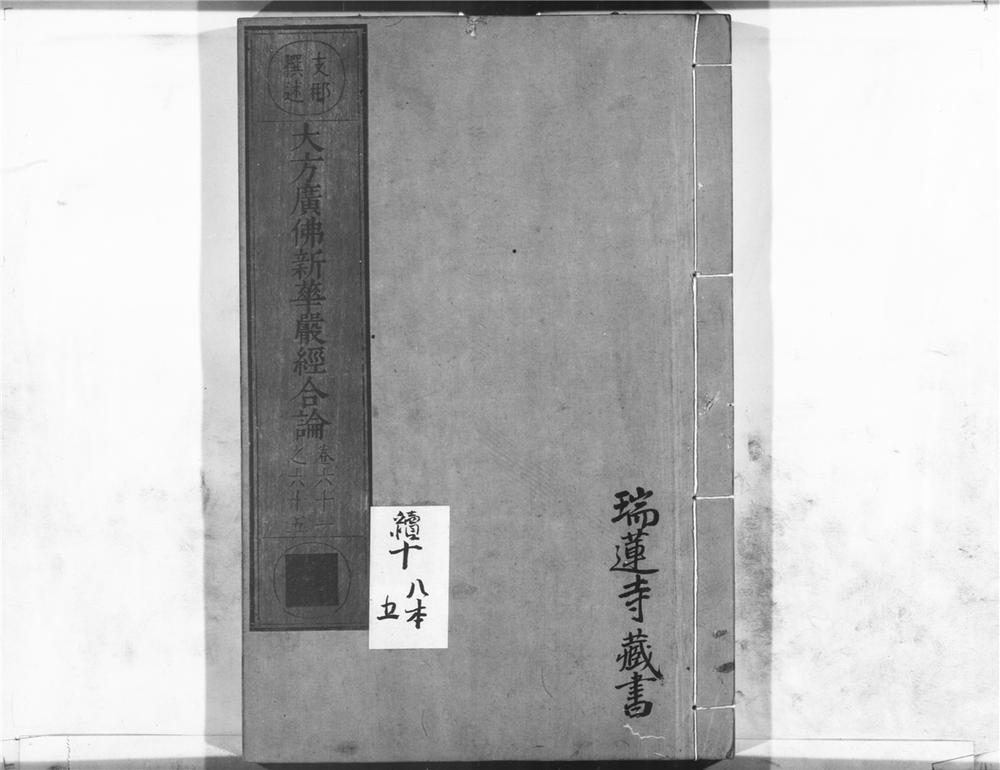 支那
撰述
大方廣佛新華嚴經合論
卷六十一
之六十五
續十
八本
五
瑞蓮寺藏書